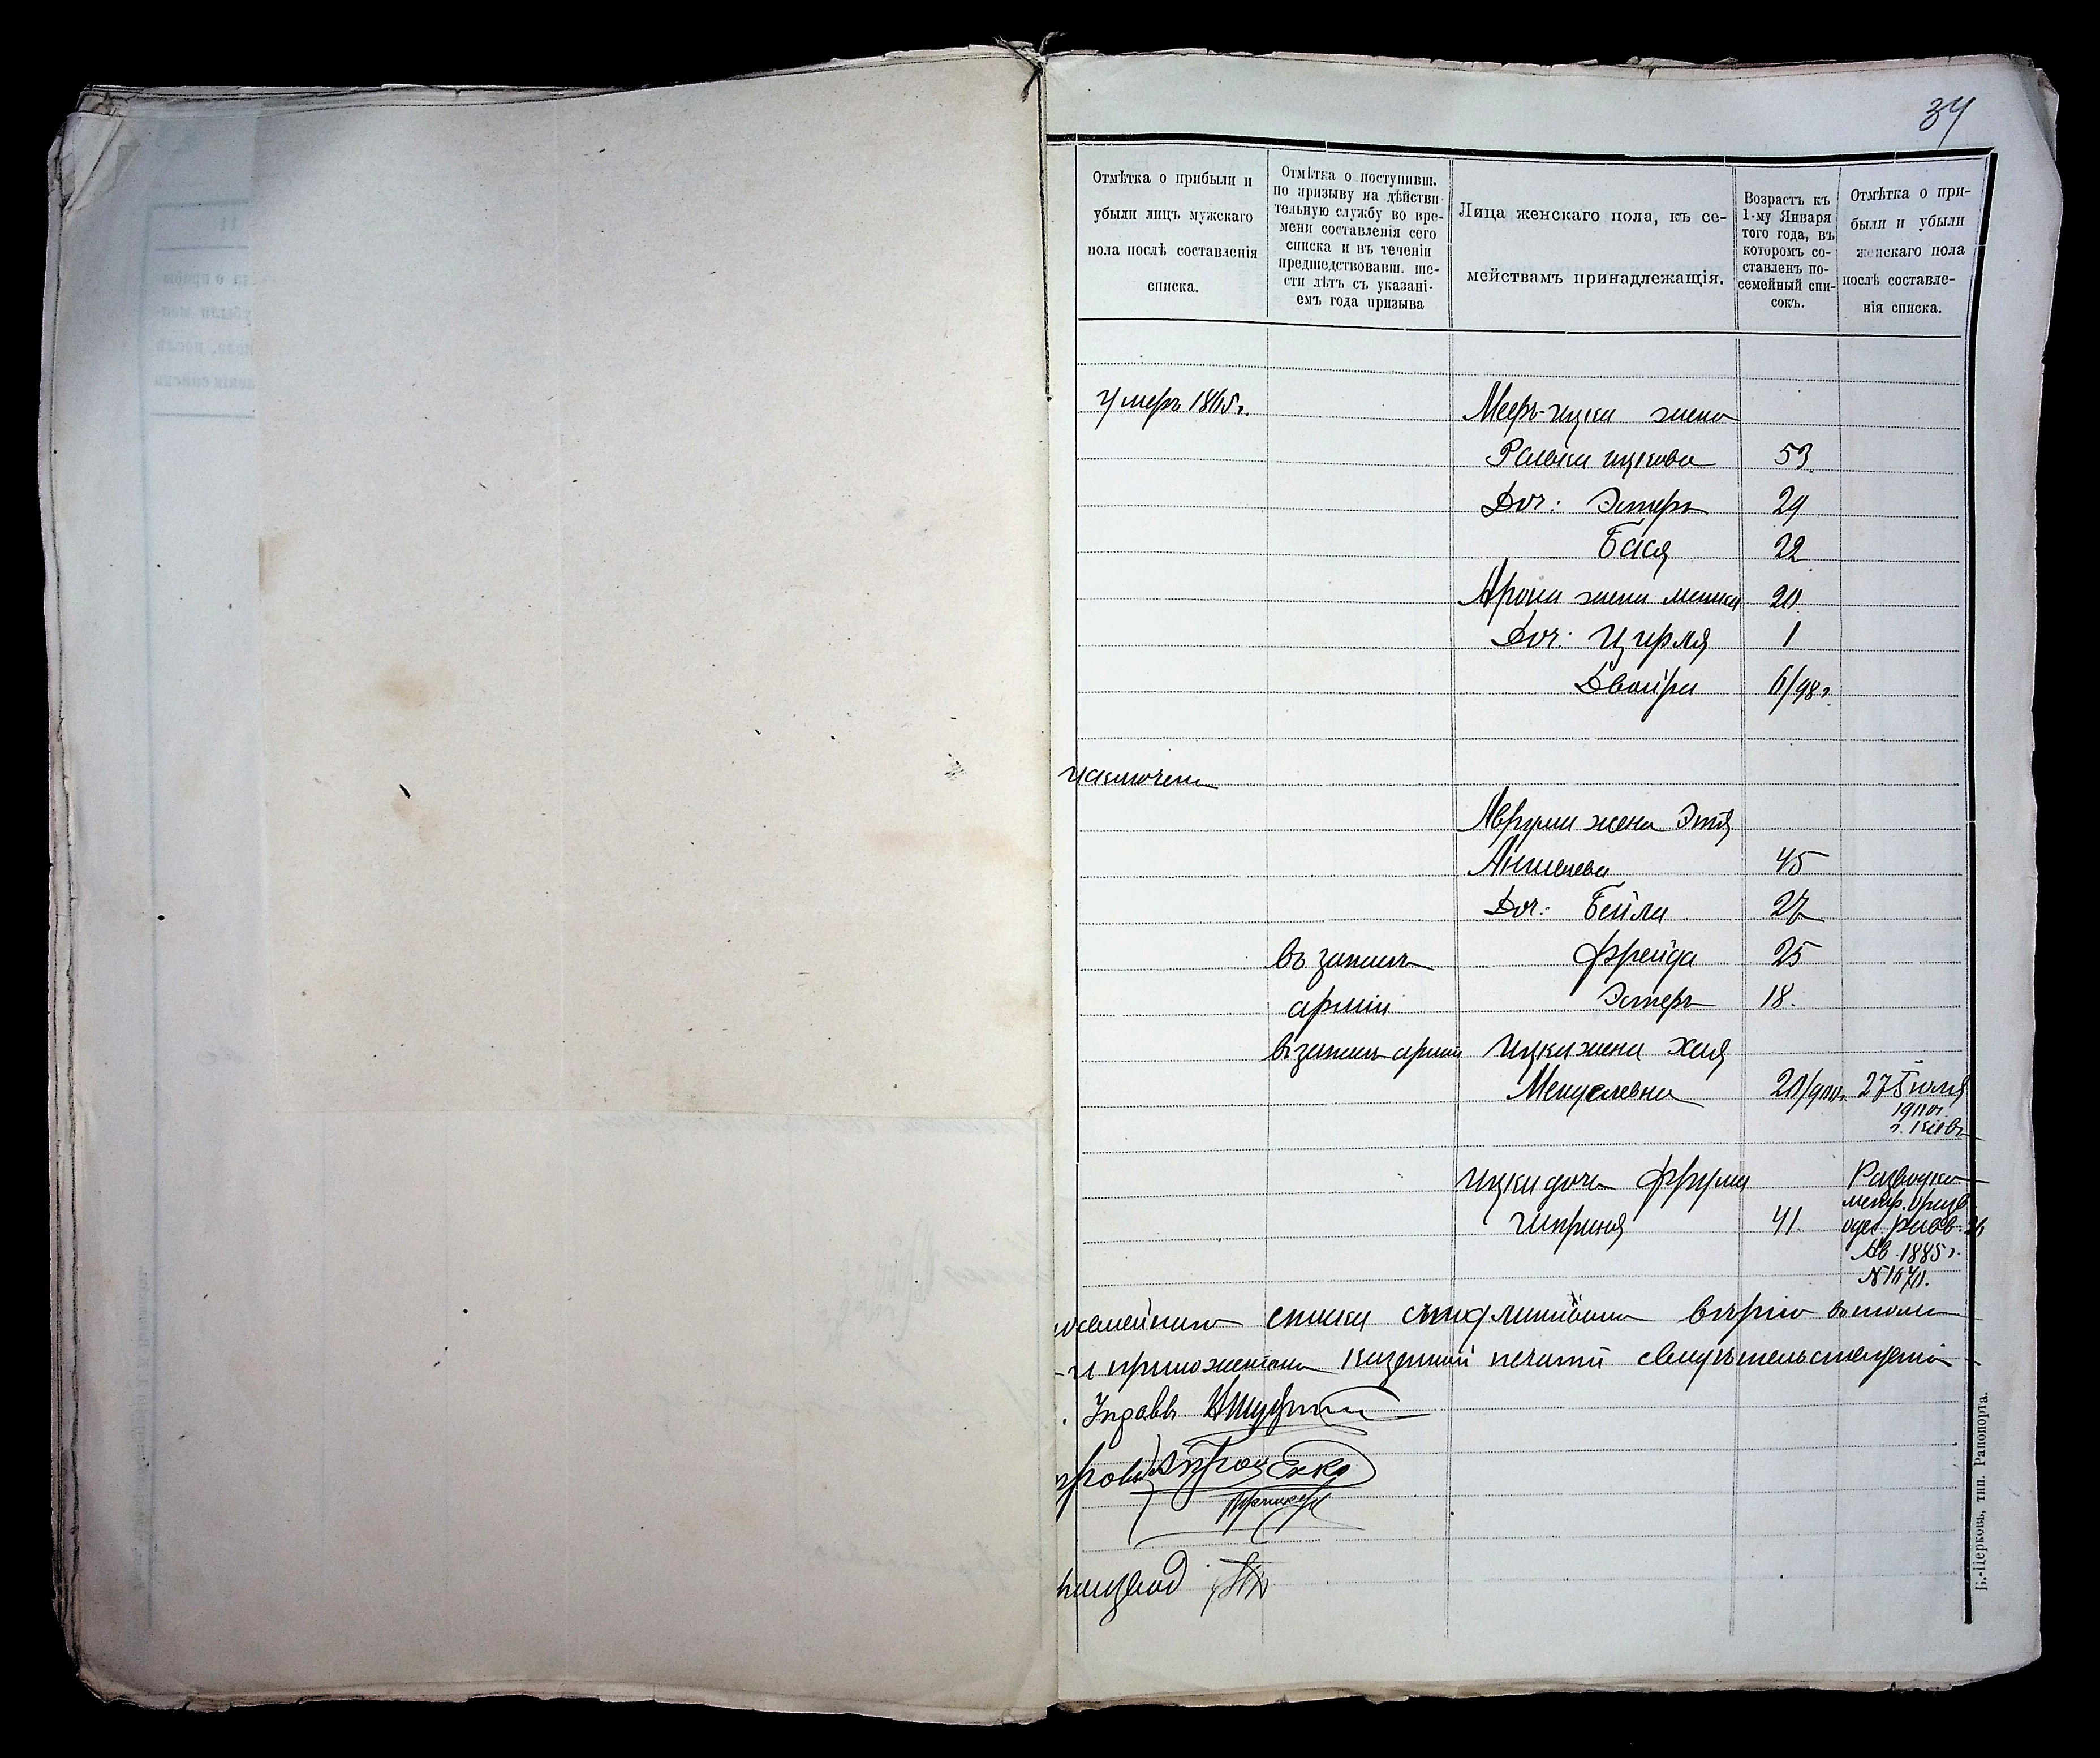 34
Отмѣтка о прибыли и
убыли лицъ мужскаго
пола послѣ составленія
списка.
Отмѣтка о поступивш.
по призыву на дѣйстви-
тельную службу во вре-
мени составленія сего
списка и въ теченіи
предшедствовавш. ше-
сти лѣтъ съ указані-
емъ года призыва
Лица женскаго пола, къ се-
мействамъ принадлежащія.
Возрастъ къ
1-му Января
того года, въ
которомъ со-
ставленъ по-
семейный спи-
сокъ.
Отмѣтка о при-
были и убыли
женскаго пола
послѣ составле-
нія списка.
умеръ 1865 г. Мееръ-Ицки жена
Ицкова 53
Доч: Эстеръ 29
Бася 22
Арона жена 20
Доч: Цирля 1
Двойра 6/98 г.
исключенъ
Аврума жена Этя
Аншелева 45
Доч: Бейла 27
въ запасъ Фрейда 25
арміи Эстеръ 18
въ запасъ арміи Ицки жена Хая
20/900 г. 27 Іюля
1910 г.
г. Кіевъ
Ицки дочь Фрума 
41. 
1885 г.
N 1671.
списка съ подлиннымъ вѣрно въ томъ
и приложеніемъ казенной печати свидѣтельствуетъ
Управы
Б.-Церковь, тип. Рапопорта.